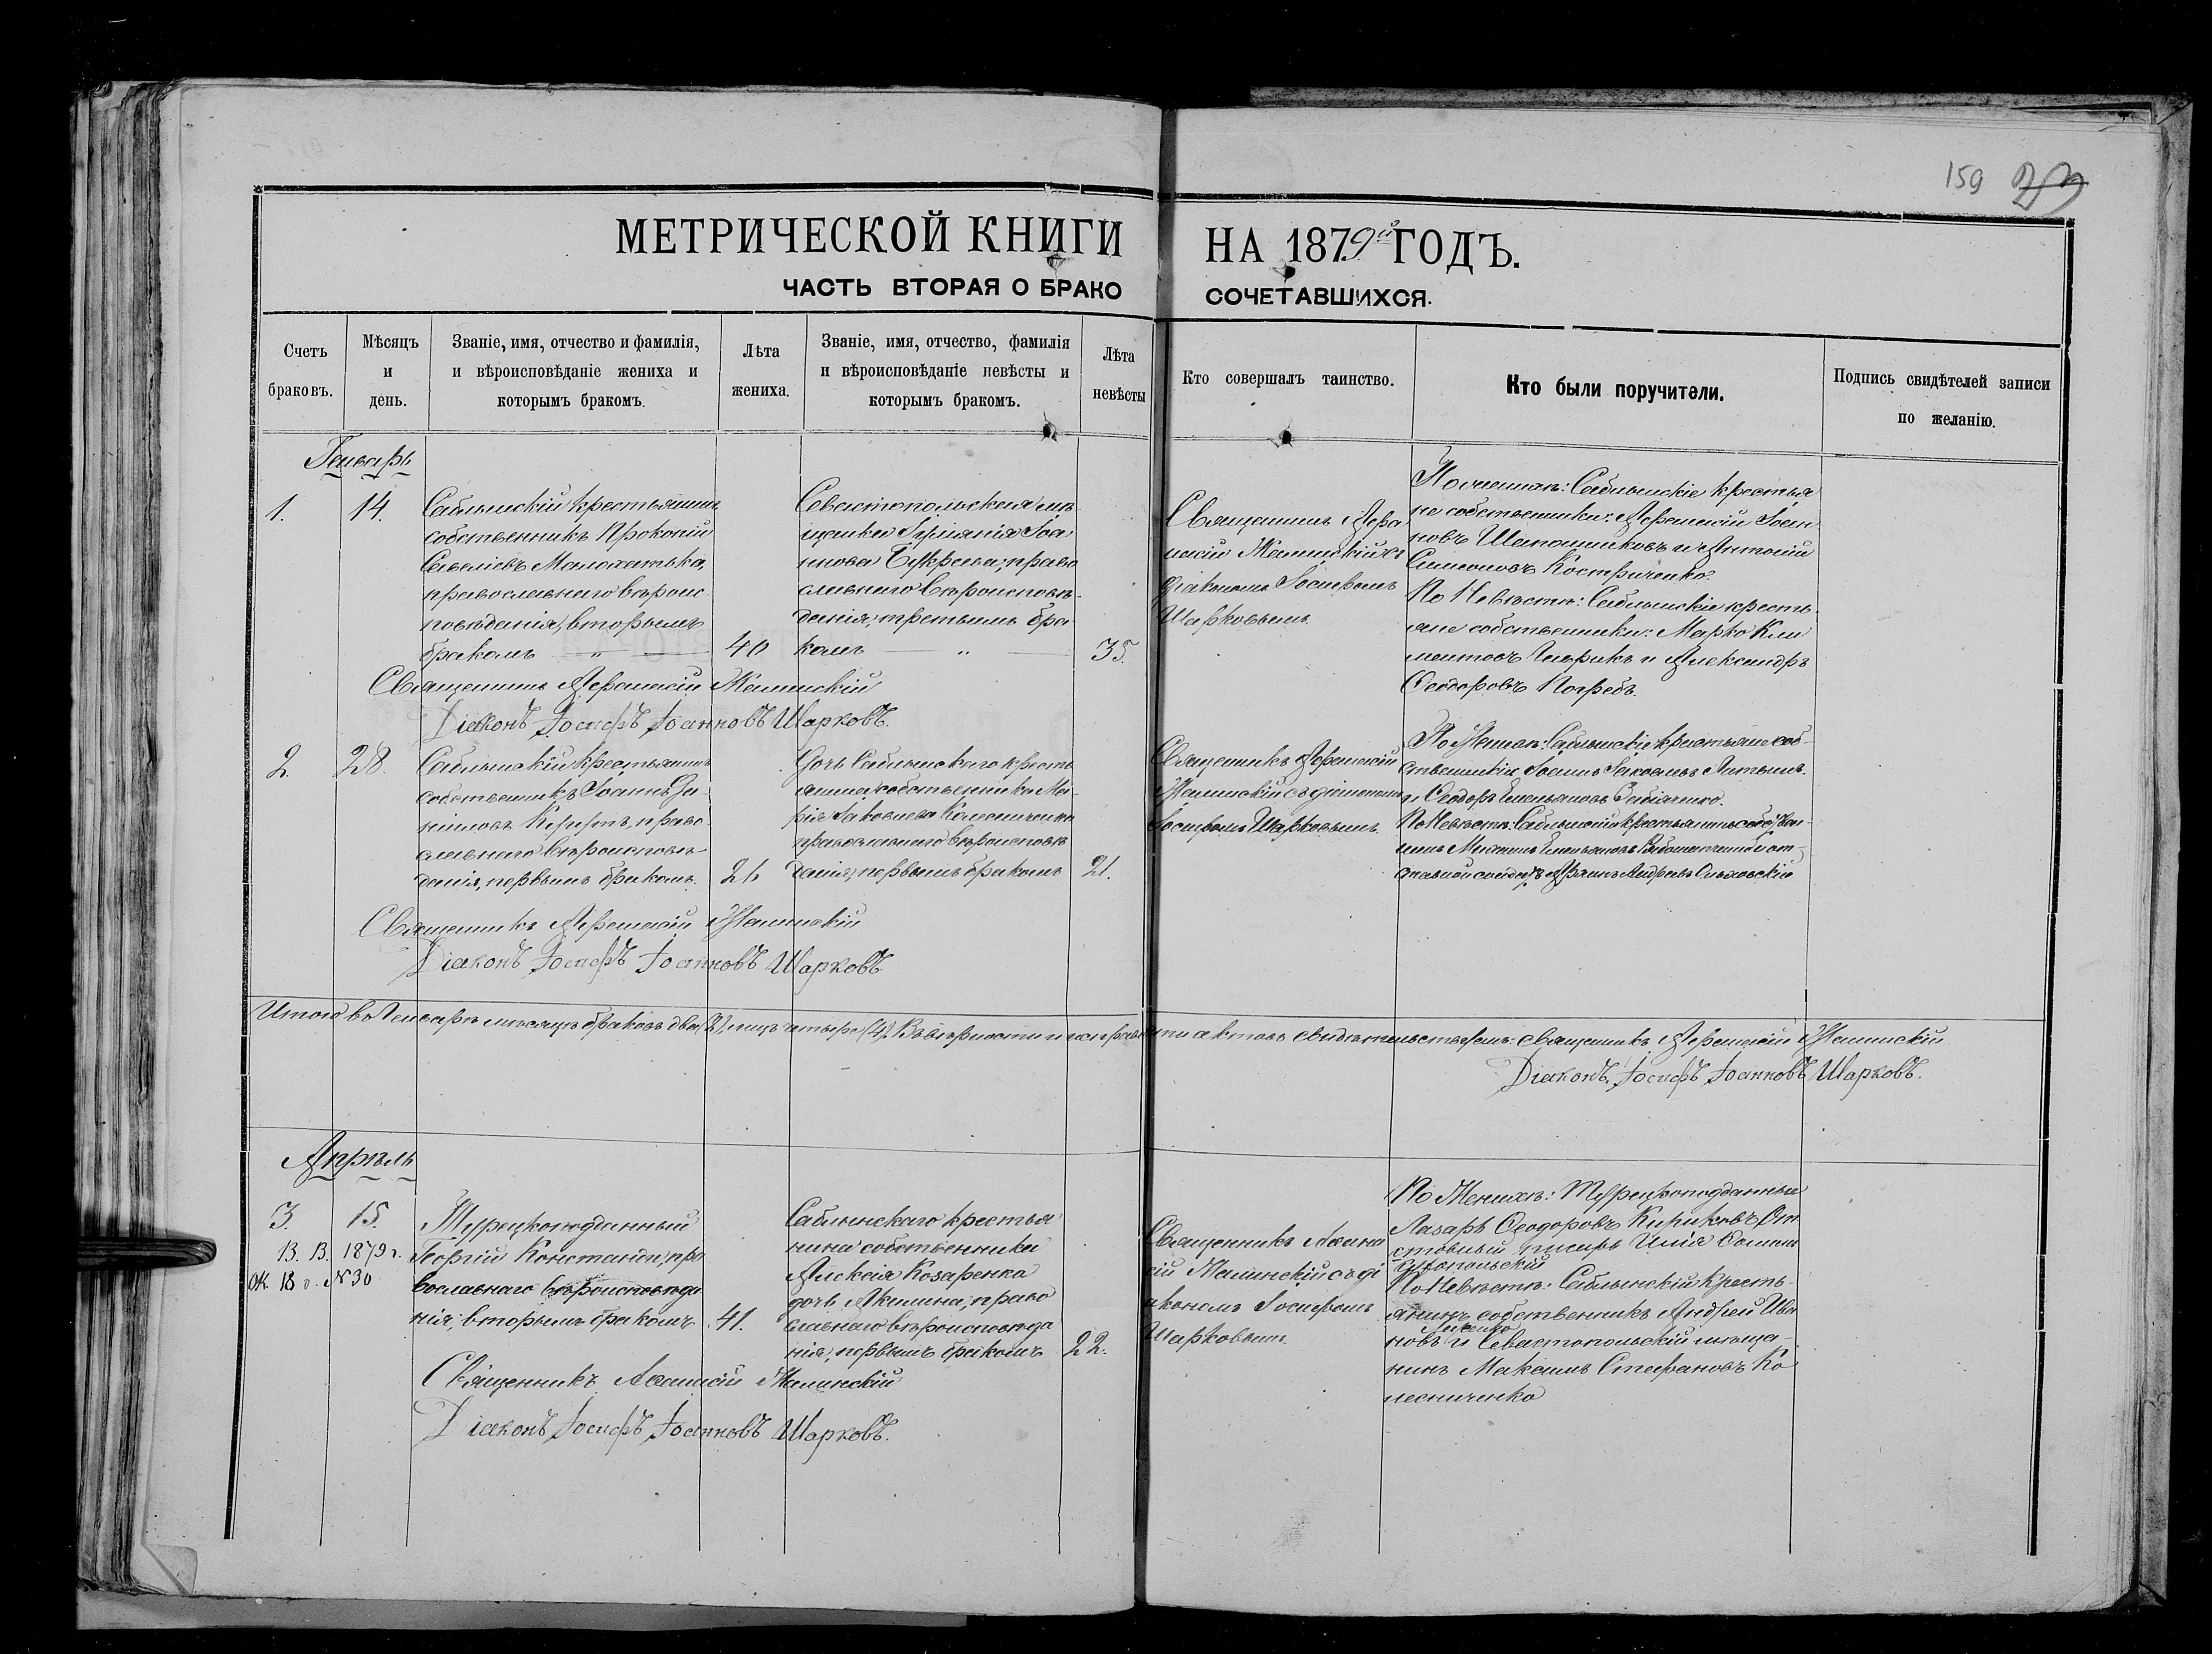 159
МЕТРИЧЕСКОЙ КНИГИ НА 1879й ГОДЪ.
ЧАСТЬ ВТОРАЯ О БРАКОСОЧЕТАВШИХСЯ.
Счетъ браковъ.
Мѣсяцъ и день.
Званіе, имя, отчество и фамилія, и вѣроисповѣданіе жениха и которымъ бракомъ.
Лѣта жениха.
Званіе, имя, отчество, фамилія и вѣроисповѣданіе невѣсты и которымъ бракомъ.
Лѣта невѣсты
Кто совершалъ таинство.
Кто были поручители.
Подпись свидѣтелей записи по желанію.
Генварь
1.
14.
Саблынскій крестьянинъ
собственникъ Прокопій
Савеліевъ Малохатька,
православнаго вѣроис
повѣданія, вторымъ
бракомъ
40
Севастопольская мѣ
щанка Іоан
нова православнаго вѣроисповѣ
данія, третьимъ бра
комъ
35.
Священникъ Афана
сій Жалинскій съ
діакономъ Іосифомъ
Шарковымъ
По женихѣ: Саблынскіе крестья
не собственники: Афанасій Іоан
новъ Шапошниковъ и Антоній
Симоновъ Костриченко.
По Невѣстѣ: Саблынскіе кресть
яне собственники: Марко Кли
ментовъ и Александръ
Ѳеодоровъ Погребъ.
Священникъ Афанасій Жалинскій
Діаконъ Іосифъ Іоанновъ Шарковъ.
2.
28.
Саблынскій крестьянинъ
собственникъ Іоаннъ Да
ніиловъ право
славнаго вѣроисповѣ
данія, первымъ бракомъ.
21
Дочь Саблынскаго кресть
янина собственника Ма
рія Іаковлева Коломиченко
православнаго вѣроисповѣ
данія, первымъ бракомъ
21.
Священникъ Афанасій
Жалинскій съ діакономъ
Іосифомъ Шарковымъ.
По Женихѣ: Саблынскіе крестьяне соб
ственники Іоаннъ Іаковлевъ
и Ѳеодоръ Емельяновъ
По Невѣстѣ: Саблынскій крестьянинъ
Емельяновъ и от
ставной солдатъ Андреевъ
Священникъ Афанасій Жалинскій
Діаконъ Іосифъ Іоанновъ Шарковъ
Итого въ Генварѣ мѣсяцѣ браковъ два (2), лицъ четыре (4). Въ вѣрности и исправности актовъ свидѣтельствуемъ: священникъ Афанасій Жалинскій
Діаконъ Іосифъ Іоанновъ Шарковъ.
Апрѣль
3.
15.
В. В. 1879 г.
№ 30
Турецкоподданный
Георгій Константи, пра
вославнаго вѣроисповѣда
нія, вторымъ бракомъ
41.
Саблынскаго крестья
нина собственника
Алексія Козаренка
дочь Акилина, право
славнаго вѣроисповѣда
нія, первымъ бракомъ
22.
Священникъ Афана
сій Жалинскій съ ді
акономъ Іосифомъ
Шарковымъ
По Женихѣ: Турецкоподданный
Лазарь Ѳеодоровъ Кириковъ, От
ставный писарь Илія
По Невѣстѣ: Саблынскій кресть
янинъ собственникъ Андрей Ива
новъ и Севастопольскій мѣща
нинъ Максимъ Стефановъ Ко
лесниченко
Священникъ Афанасій Жалинскій
Діаконъ Іосифъ Іоанновъ Шарковъ.